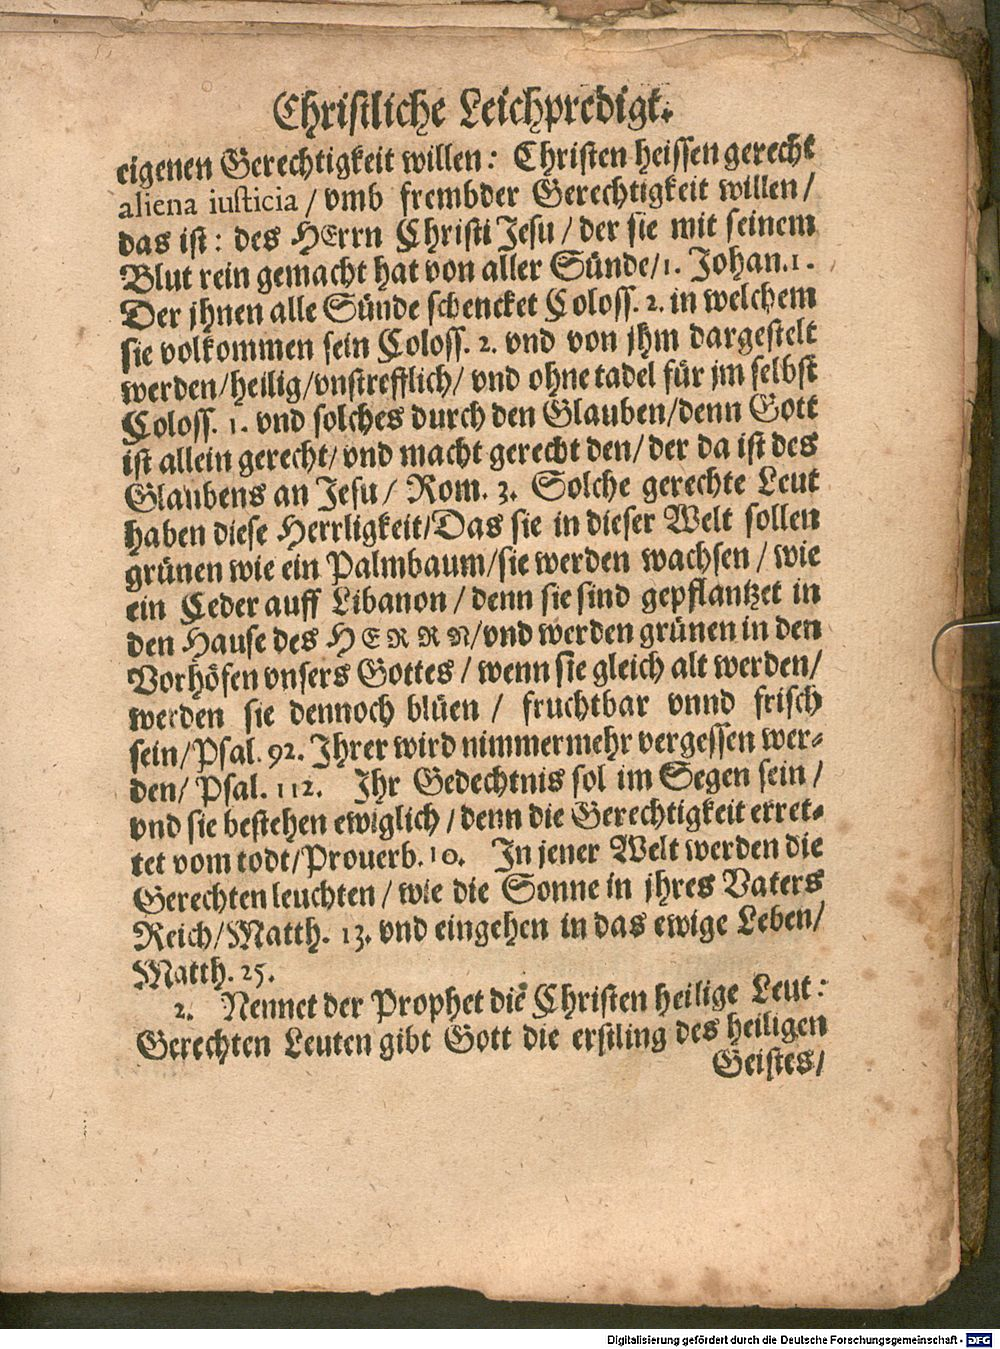 Christliche Leichpredigt.
eigenen Gerechtigkeit willen: Christen heissen gerecht
aliena iusticia / vmb frembder Gerechtigkeit willen /
das ist: des HErrn Christi Jesu / der sie mit seinem
Blut rein gemacht hat von aller Sünde/1. Johan.1.
Der jhnen alle Sünde schencket Coloss. 2. in welchem
sie volkommen sein Coloss. 2. vnd von jhm dargestelt
werden/heilig/vnstrefflich/ vnd ohne tadel für jm selbst
Coloss. 1. vnd solches durch den Glauben/denn Gott
ist allein gerecht/ vnd macht gerecht den/ der da ist des
Glaubens an Jesu / Rom. 3. Solche gerechte Leut
haben diese Herrligkeit/Das sie in dieser Welt sollen
grünen wie ein Palmbaum/sie werden wachsen / wie
ein Ceder auff Libanon / denn sie sind gepflantzet in
den Hause des HERRN/vnd werden grünen in den
Vorhöfen vnsers Gottes / wenn sie gleich alt werden/
werden sie dennoch blüen / fruchtbar vnnd frisch
sein/Psal. 92. Ihrer wird nimmermehr vergessen wer-
den/ Psal. 112. Ihr Gedechtnis sol im Segen sein /
vnd sie bestehen ewiglich / denn die Gerechtigkeit erret-
tet vom todt/Prouerb. 10. In jener Welt werden die
Gerechten leuchten / wie die Sonne in jhres Vaters
Reich/Matth. 13. vnd eingehen in das ewige Leben/
Matth. 25.
2. Nennet der Prophet die Christen heilige Leut:
Gerechten Leuten gibt Gott die erstling des heiligen
Geistes/
Digitalisierung gefördert durch die Deutsche Forschungsgemeinschaft - DFG